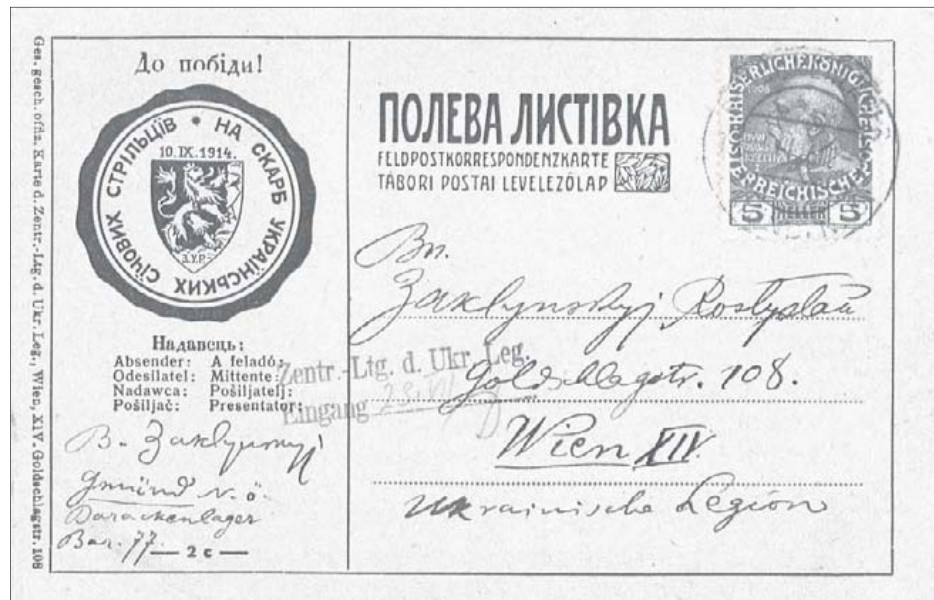 Ges. gesch. offiz. Karte d. Zentr.-Ltg. d. Ukr. Leg., Wien, XIV. Goldschlagstr. 108
До побіди!
НА СКАРБ УКРАЇНСЬКИХ СІЧОВИХ СТРІЛЬЦІВ •
10. IX. 1914.
З.У.Р.
Надавець:
Absender: A feladó:
Odesílatel: Mittente:
Nadawca: Pošiljatelj:
Pošiljač: Presentator:
B. Zaklynskyj
Gmünd N. Ö
Barackenlager
Bar. 77.
— 2 c —
ПОЛЕВА ЛИСТІВКА
FELDPOSTKORRESPONDENZKARTE
TÁBORI POSTAI LEVELEZŐLAP
KAISERLICHE KÖNIGLICHE
ÖSTERREICHISCHE
5 5
Вп.
Zaklynskyj Rostyslaŭ
Goldschlagstr. 108.
Wien XIV.
Ukrainische Legion
Zentr.-Ltg. d. Ukr. Leg.
Eingang